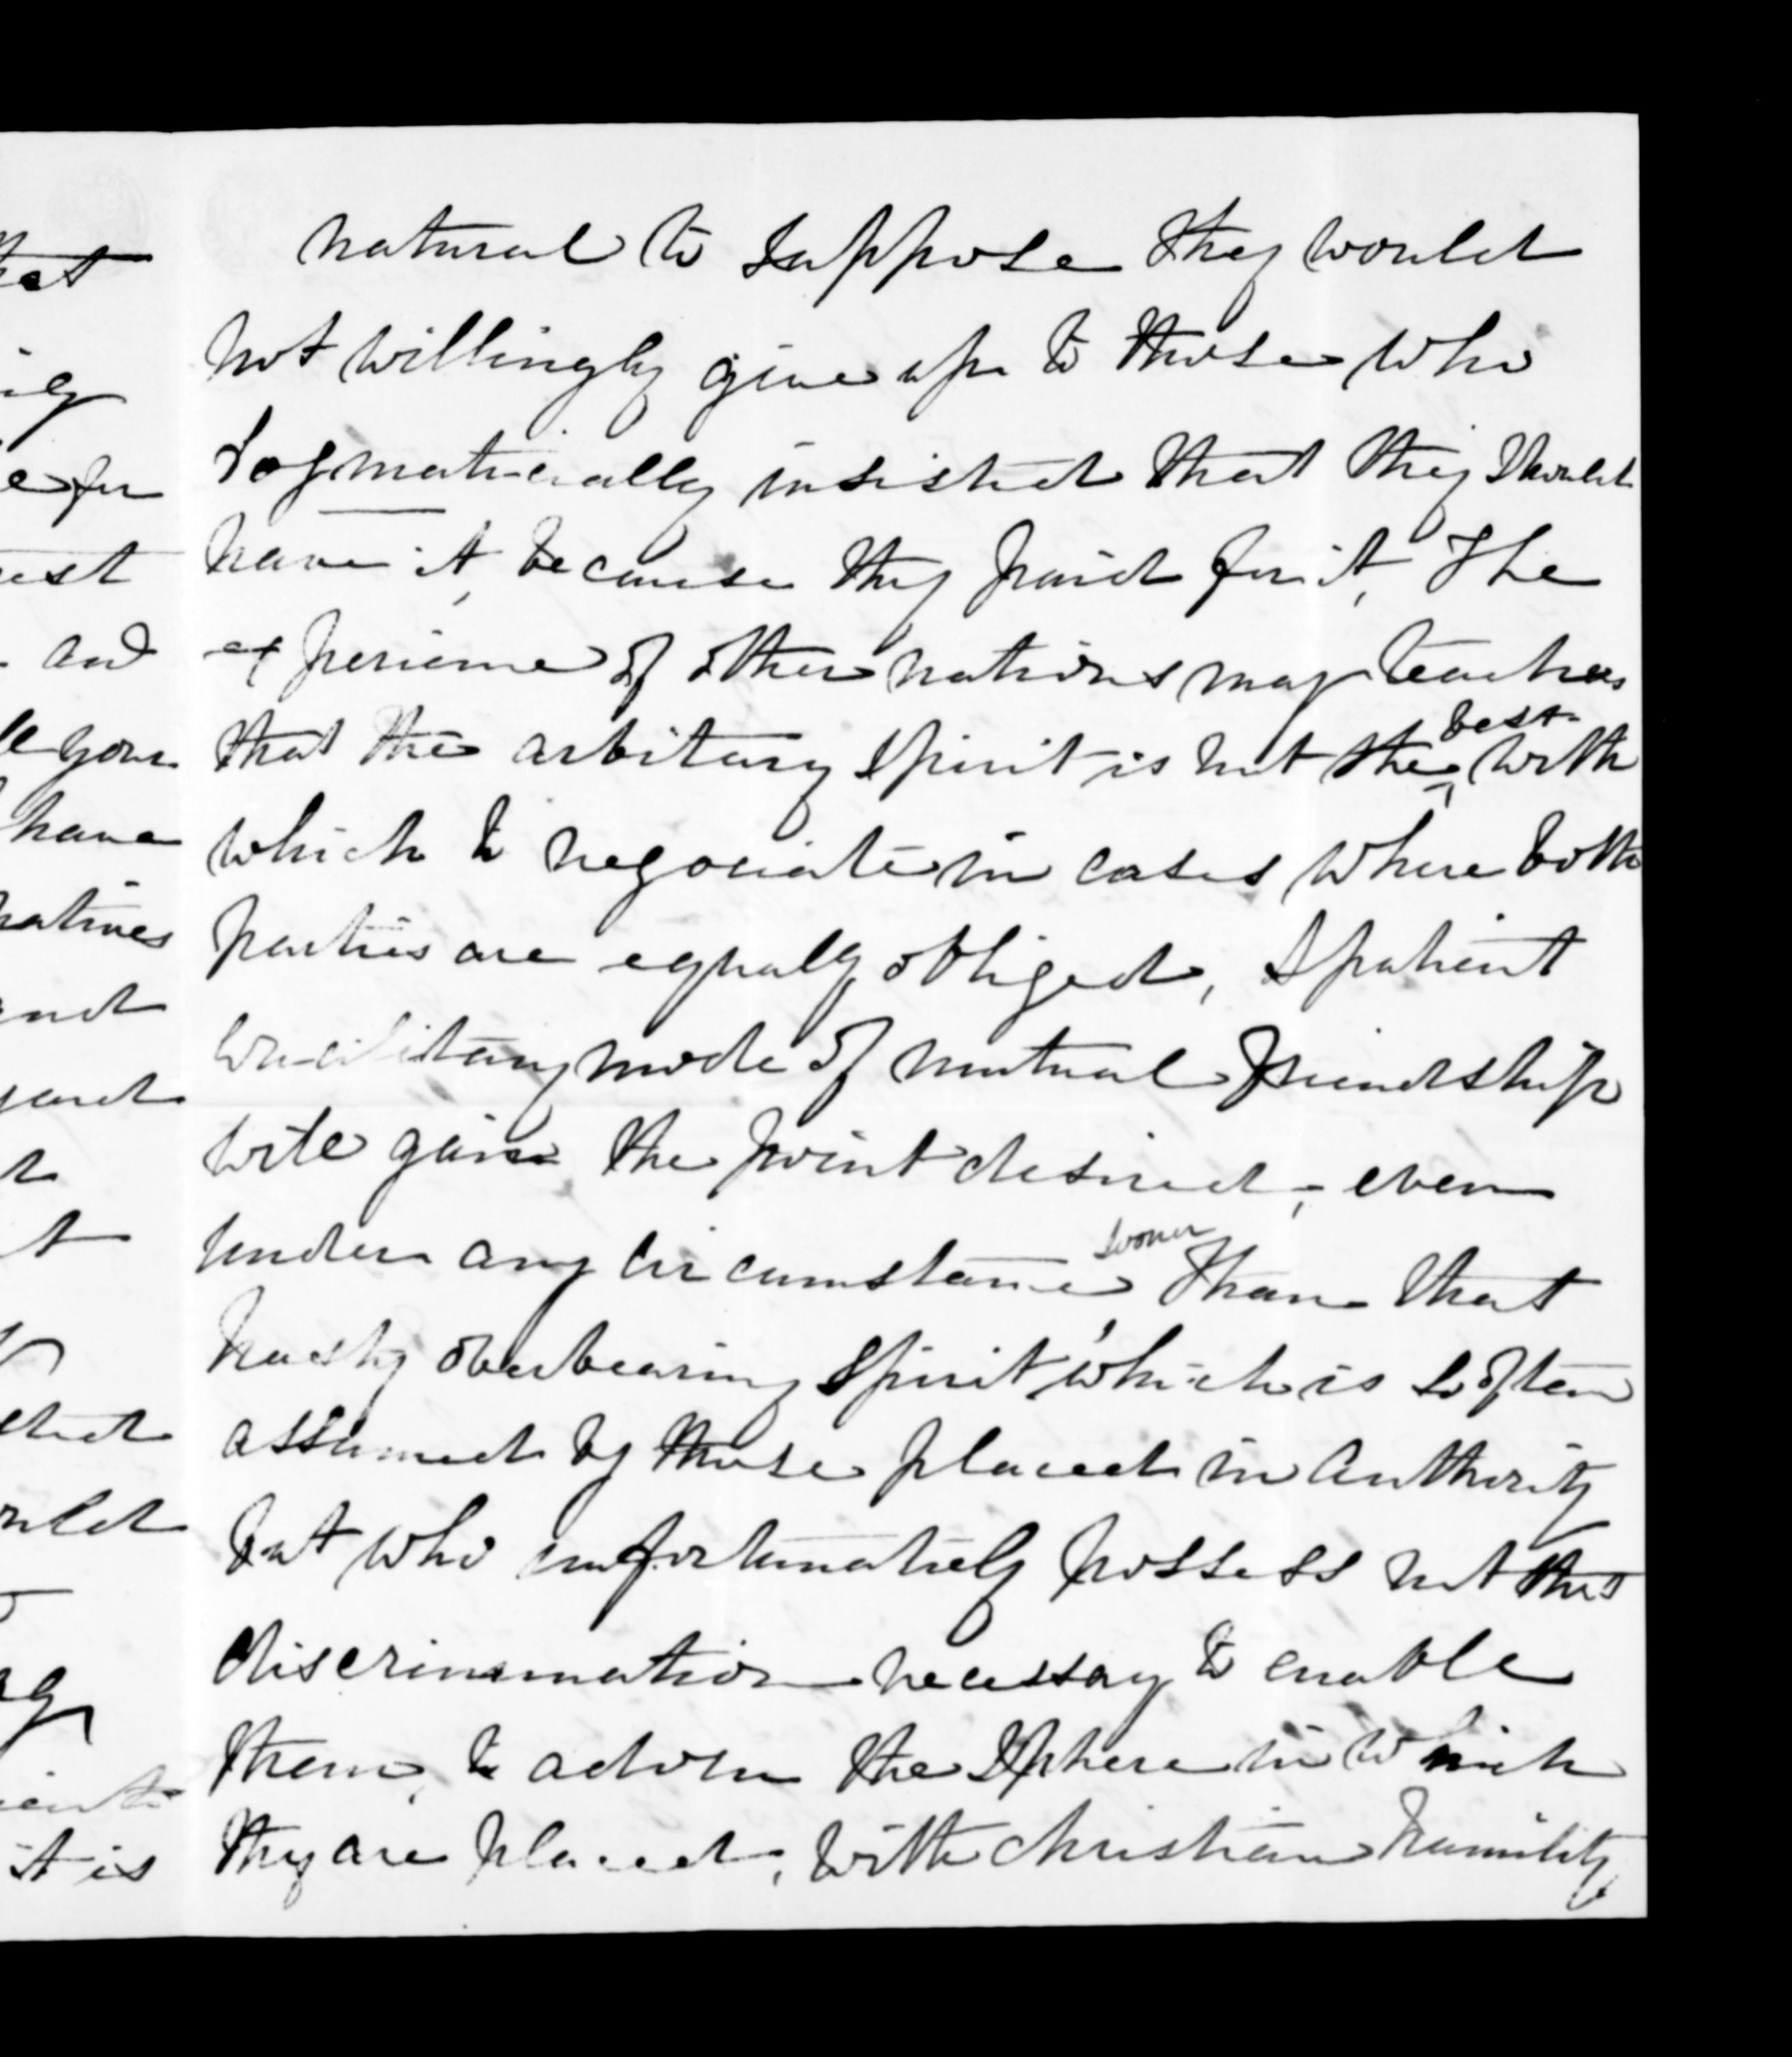 natural to suppose they would
not willingly give up to those who
dogmatically insisted that they should
have it, because they paid for it, The
experience of other nations may teach us
that the arbitary spirit is not the best with
which to negociate in cases where both
parties are equally obliged, A patient
conciliitary mode of mutual friendship
will gain the point desired, even
under any circumstance sooner than that
hasty overbearing spirit, which is so often
assumed by those placed in authority
but who unfortunately possess not the
discrimination necessay to enable
them, to adorn the sphere in which
they are placed, with christian humility
have
natives
and
it is